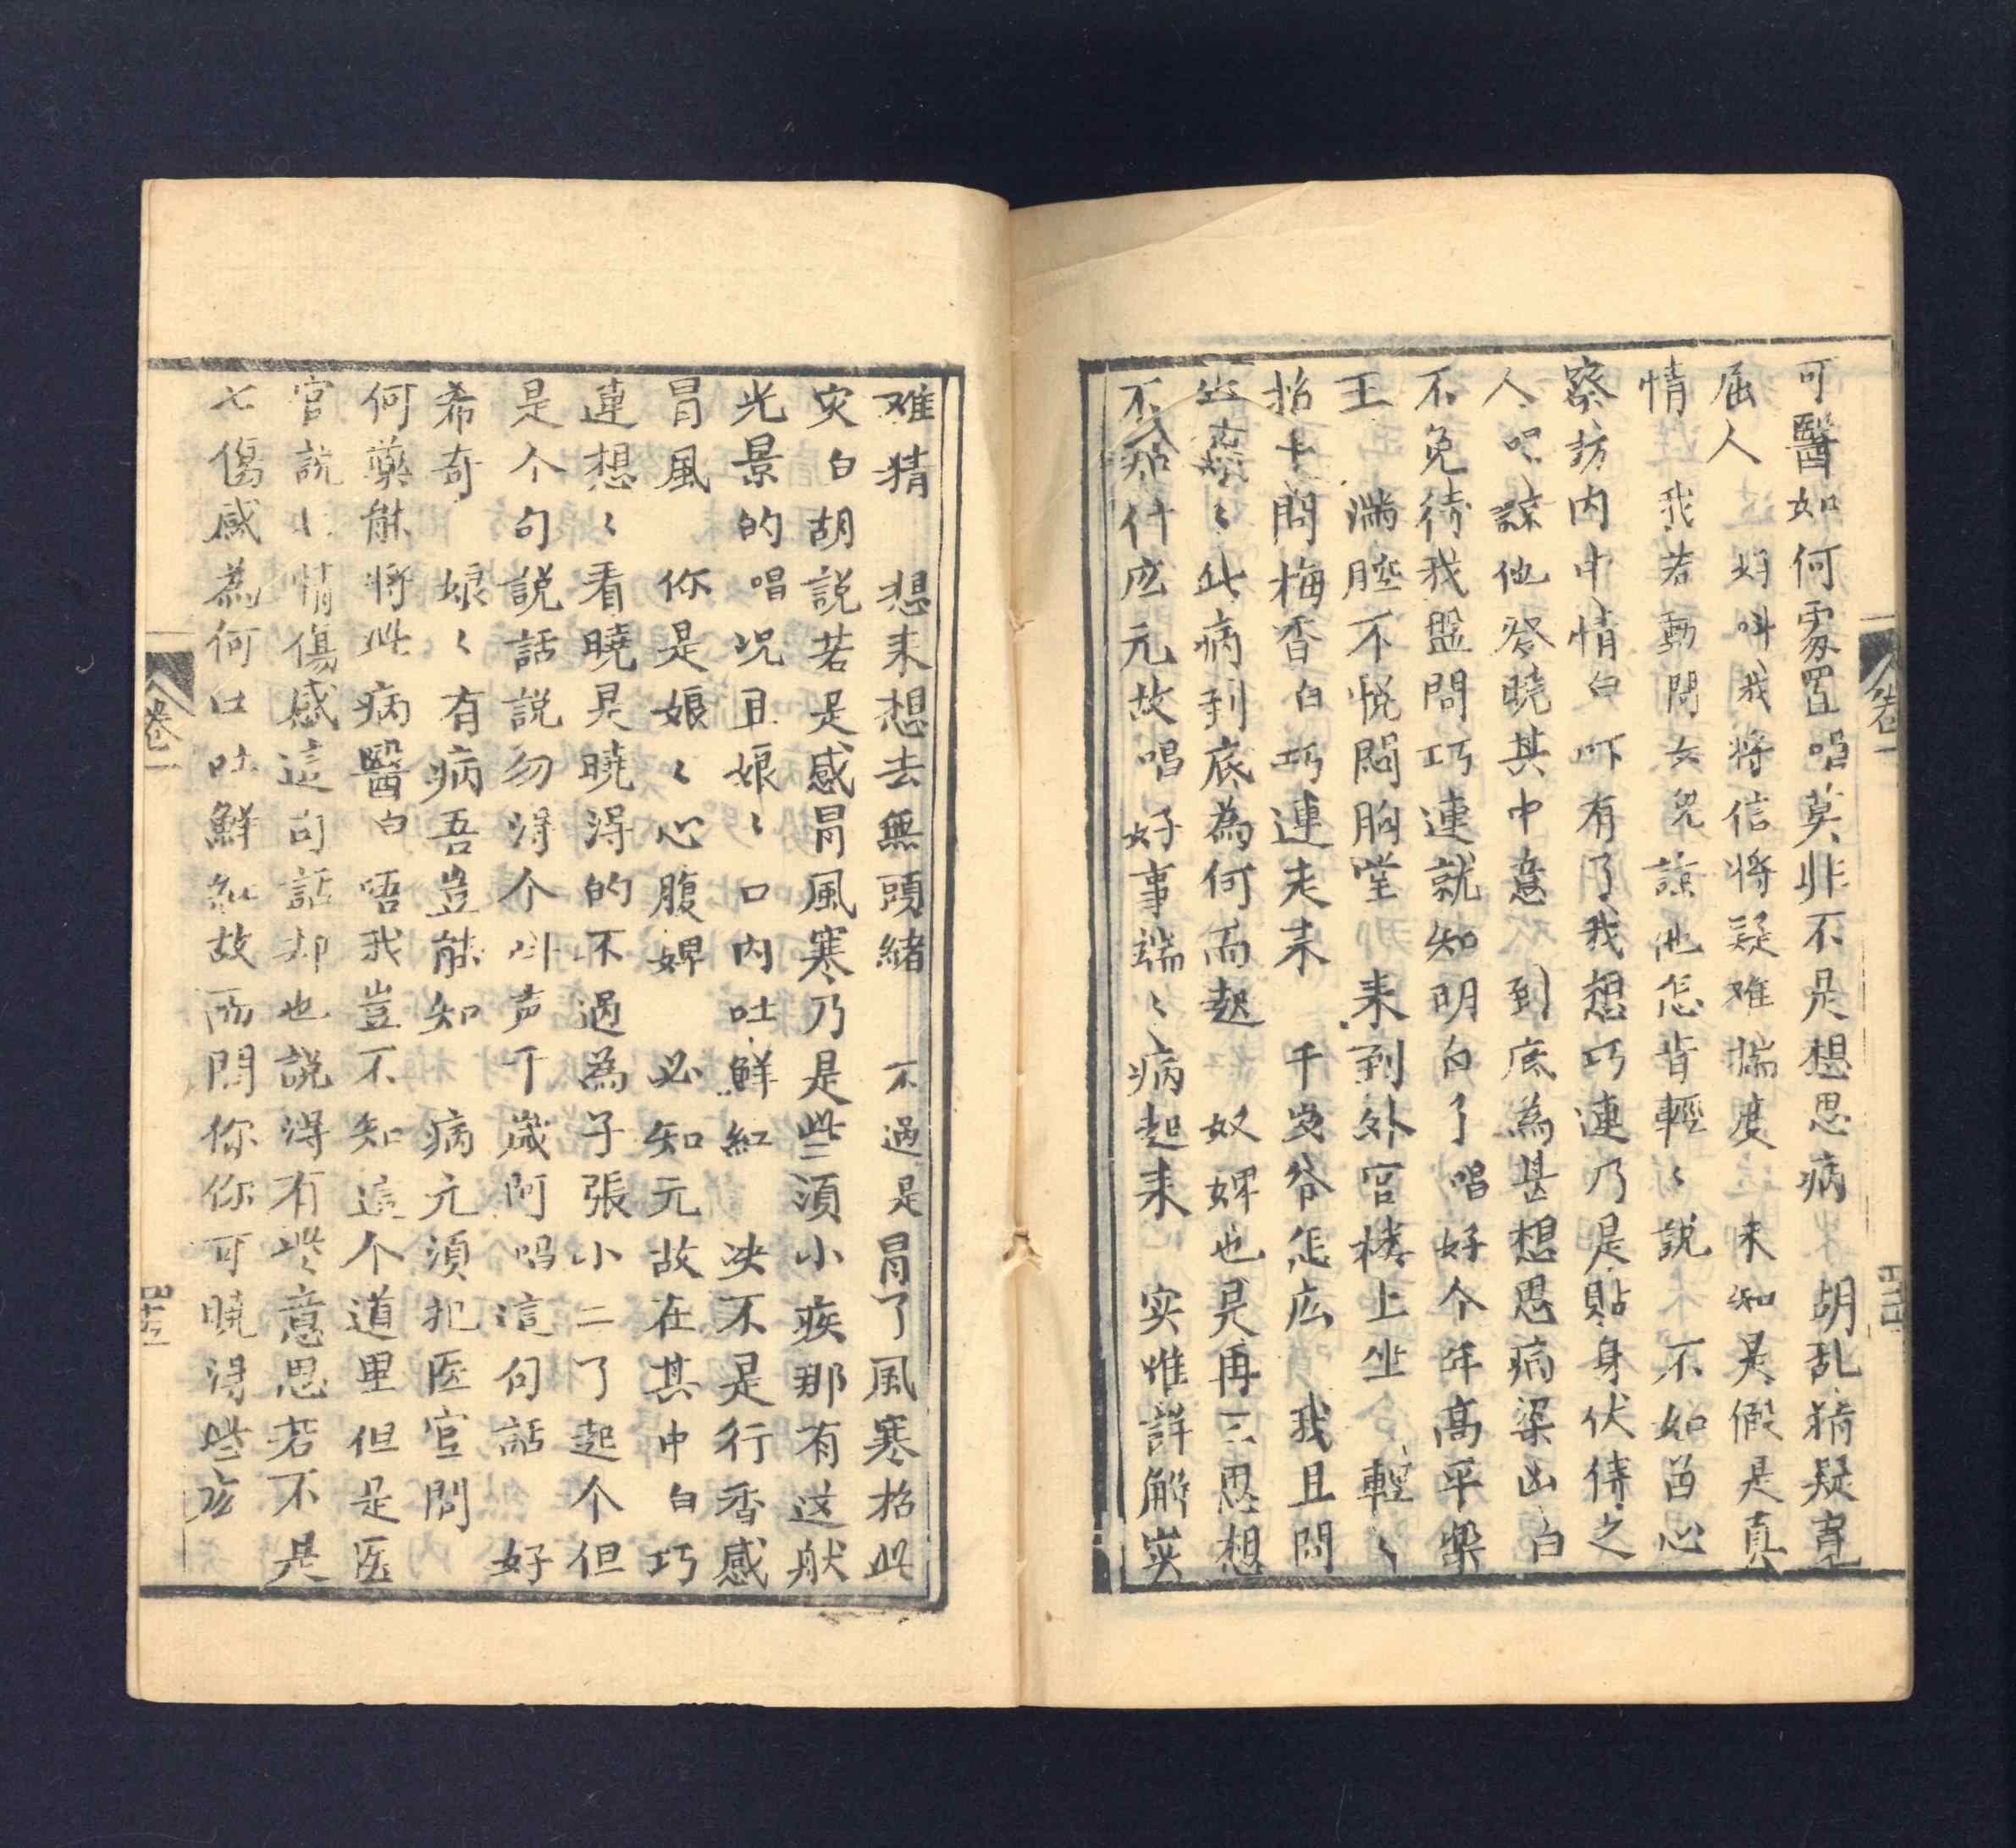 可醫如何處置唱莫非不是想思病 胡乱猜疑寃
屈人 好呌我將信將疑难揣度 未知是假是真
情 我若動問女兒諒他怎肯輕〻說 不如畄心
察訪内中情白吓有了我想巧連乃是貼身伏侍之
人 呪諒他発曉其中意 到底為甚想思病梁凶白
不免待我盤問巧連就知明白了唱好个年高平樂
王 滿腔不悦悶胸堂 来到外宫楼上坐 輕〻
招手問梅香白巧連走来 千岁爷怎庅 我且問
此病到底為何而起 奴婢也是再三思想
不知什庅元故唱好事端〻病起来 实难詳解实
难猜 想来想去無頭緒 不過是冒了風寒招此
灾白胡説若是感冒風寒乃是些須小疾那有这般
光景的唱况且娘〻口内吐鮮紅 决不是行香感
冒風 你是娘〻心腹婢 必知元故在其中白巧
連想〻看曉㫕曉得的不過為子張小二了起个但
是个句説話説勿得个吽声千歲阿唱這句話 好
希奇 娘〻有病吾豈能知 病亢須把医官問
何藥能將此病醫白唔我豈不知這个道里但是医
官説七情傷感這句話却也説得有些意思若不是
七傷感為何口吐鮮紅故而問你你可曉得些庅
卷一
四十三
卷一